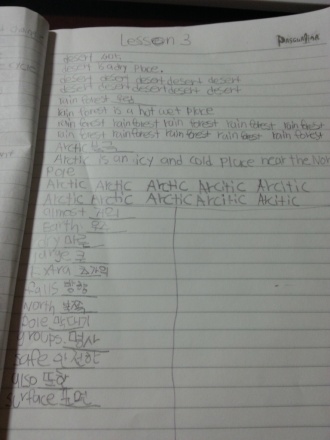 Lesson 3
desert
desert is a dry place.
desert desert desert desert desert
desert desert desert desert desert
rain forest
rain forest is a hot wet place
rain forest rainforest rain forest rain forest rain forest
rain forest rainforest rain forest rain forest rain forest
Arctic 북극
Arctic is an icy and cold place near the Nor
Pore
Arctic Arctic Arctic Arcitic Arcitic
Arctic Arctic Arctic Arcitic Arcitic
almost 거의
Earth
dry 마른
large 큰
extra 추가의
falls
North 북쪽
pole 막대기
groups
safe 안전한
also 또한
surface 표면